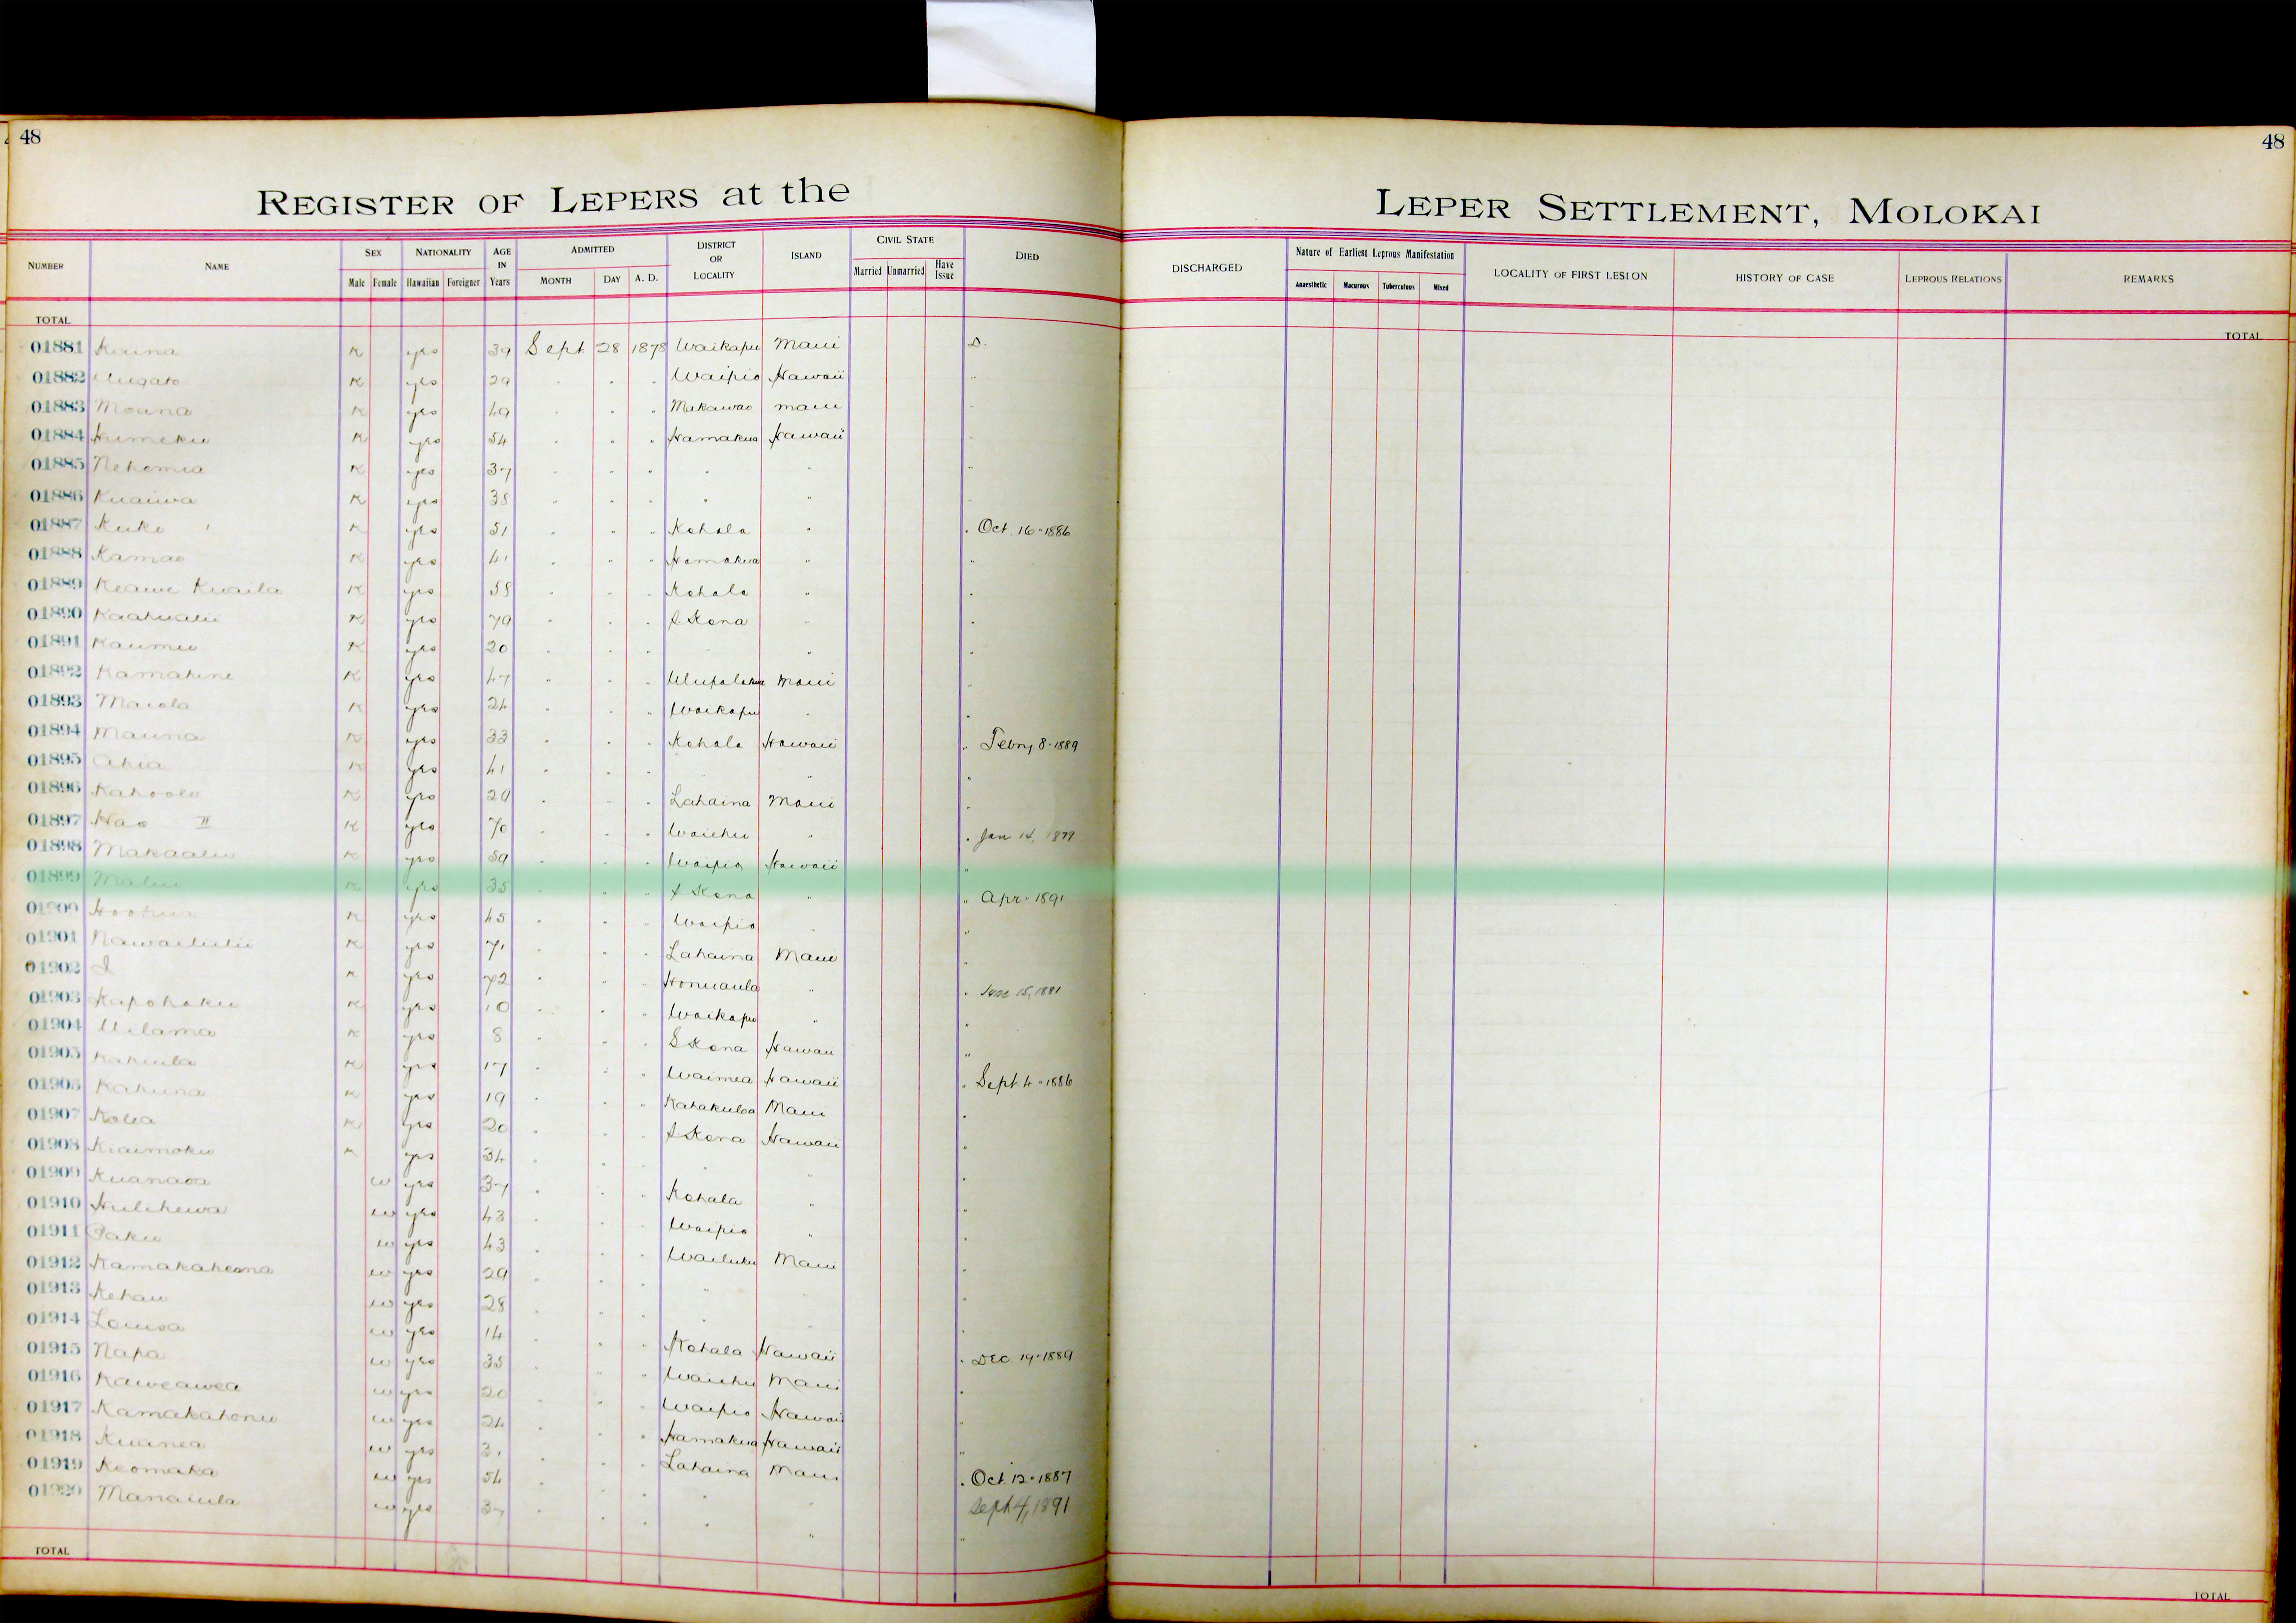 48
48
REGISTER OF LEPERS at the
LEPER SETTLEMENT, MOLOKAI
NUMBER NAME SEX Male Female NATIONALITY Hawaiian Foreigner AGE IN Years ADMITTED MONTH DAY A. D. DISTRICT OR LOCALITY ISLAND CIVIL STATE Married Unmarried Have Issue DIED
DISCHARGED Nature of Earliest Leprous Manifestation Anaesthetic Macurous Tuberculous Mixed LOCALITY OF FIRST LESION HISTORY OF CASE LEPROUS RELATIONS REMARKS
TOTAL
TOTAL
01881 K yes 39 Sept 28 1878 Waikapu Maui D.
01882 K yes 29 " " " Waipio Hawaii "
01883 Moana K yes 49 " " " Makawao Maui "
01884 Humeku K yes 54 " " " Hamakua Hawaii "
01885 Nehemia K yes 37 " " " " " "
01886 Kuaiwa K yes 38 " " " " " "
01887 Kuke K yes 51 " " " Kohala " " Oct. 16 - 1886
01888 Kamao K yes 41 " " " Hamakua " "
01889 Keawe Kuaila K yes 58 " " " Kohala " "
01890 Kaahualii K yes 79 " " " S Kona " "
01891 Kaumu K yes 20 " " " " " "
01892 Kamahine K yes 47 " " " Ulupalakua Maui "
01893 Maiola K yes 24 " " " Waikapu " "
01894 Mauna K yes 33 " " " Kohala Hawaii " Febry 8 - 1889
01895 Ahia K yes 41 " " " " " "
01896 Kahoole K yes 29 " " " Lahaina Maui "
01897 Hao II K yes 70 " " " Waiehu " " Jan 14, 1879
01898 Makaalu K yes 59 " " " Waipio Hawaii "
01899 Malu K yes 35 " " " S Kona " " Apr - 1891
01900 K yes 45 " " " Waipio " "
01901 Nawailiilii K yes 71 " " " Lahaina Maui "
01902 I K yes 72 " " " Honuaula " " June 15, 1881
01903 Kapohaku K yes 10 " " " Waikapu " "
01904 Uilama K yes 8 " " " S Kona Hawaii "
01905 Kahiula K yes 17 " " " Waimea Hawaii " Sept. 4 - 1886
01906 Kahuna K yes 19 " " " Kahakuloa Maui "
01907 Kolea K yes 20 " " " S Kona Hawaii "
01908 Kiaimoku K yes 34 " " " " " "
01909 Kuanaoa w yes 37 " " " Kohala " "
01910 Hulihewa w yes 43 " " " Waipio " "
01911 Paku w yes 43 " " " Wailuku Maui "
01912 w yes 29 " " " " "
01913 Kehau w yes 28 " " " " "
01914 Louisa w yes 14 " " " Kohala Hawaii " Dec. 19 - 1889
01915 Napa w yes 35 " " " Waiehu Maui "
01916 Kaweawea w yes 20 " " " Waipio Hawaii "
01917 Kamakahonu w yes 24 " " " Hamakua Hawaii "
01918 Kuanea w yes 31 " " " Lahaina Maui " Oct 12 - 1887
01919 Keomaka w yes 54 " " " " " Sept 4, 1891
01920 Manaiula w yes 37 " " " " " "
TOTAL
TOTAL